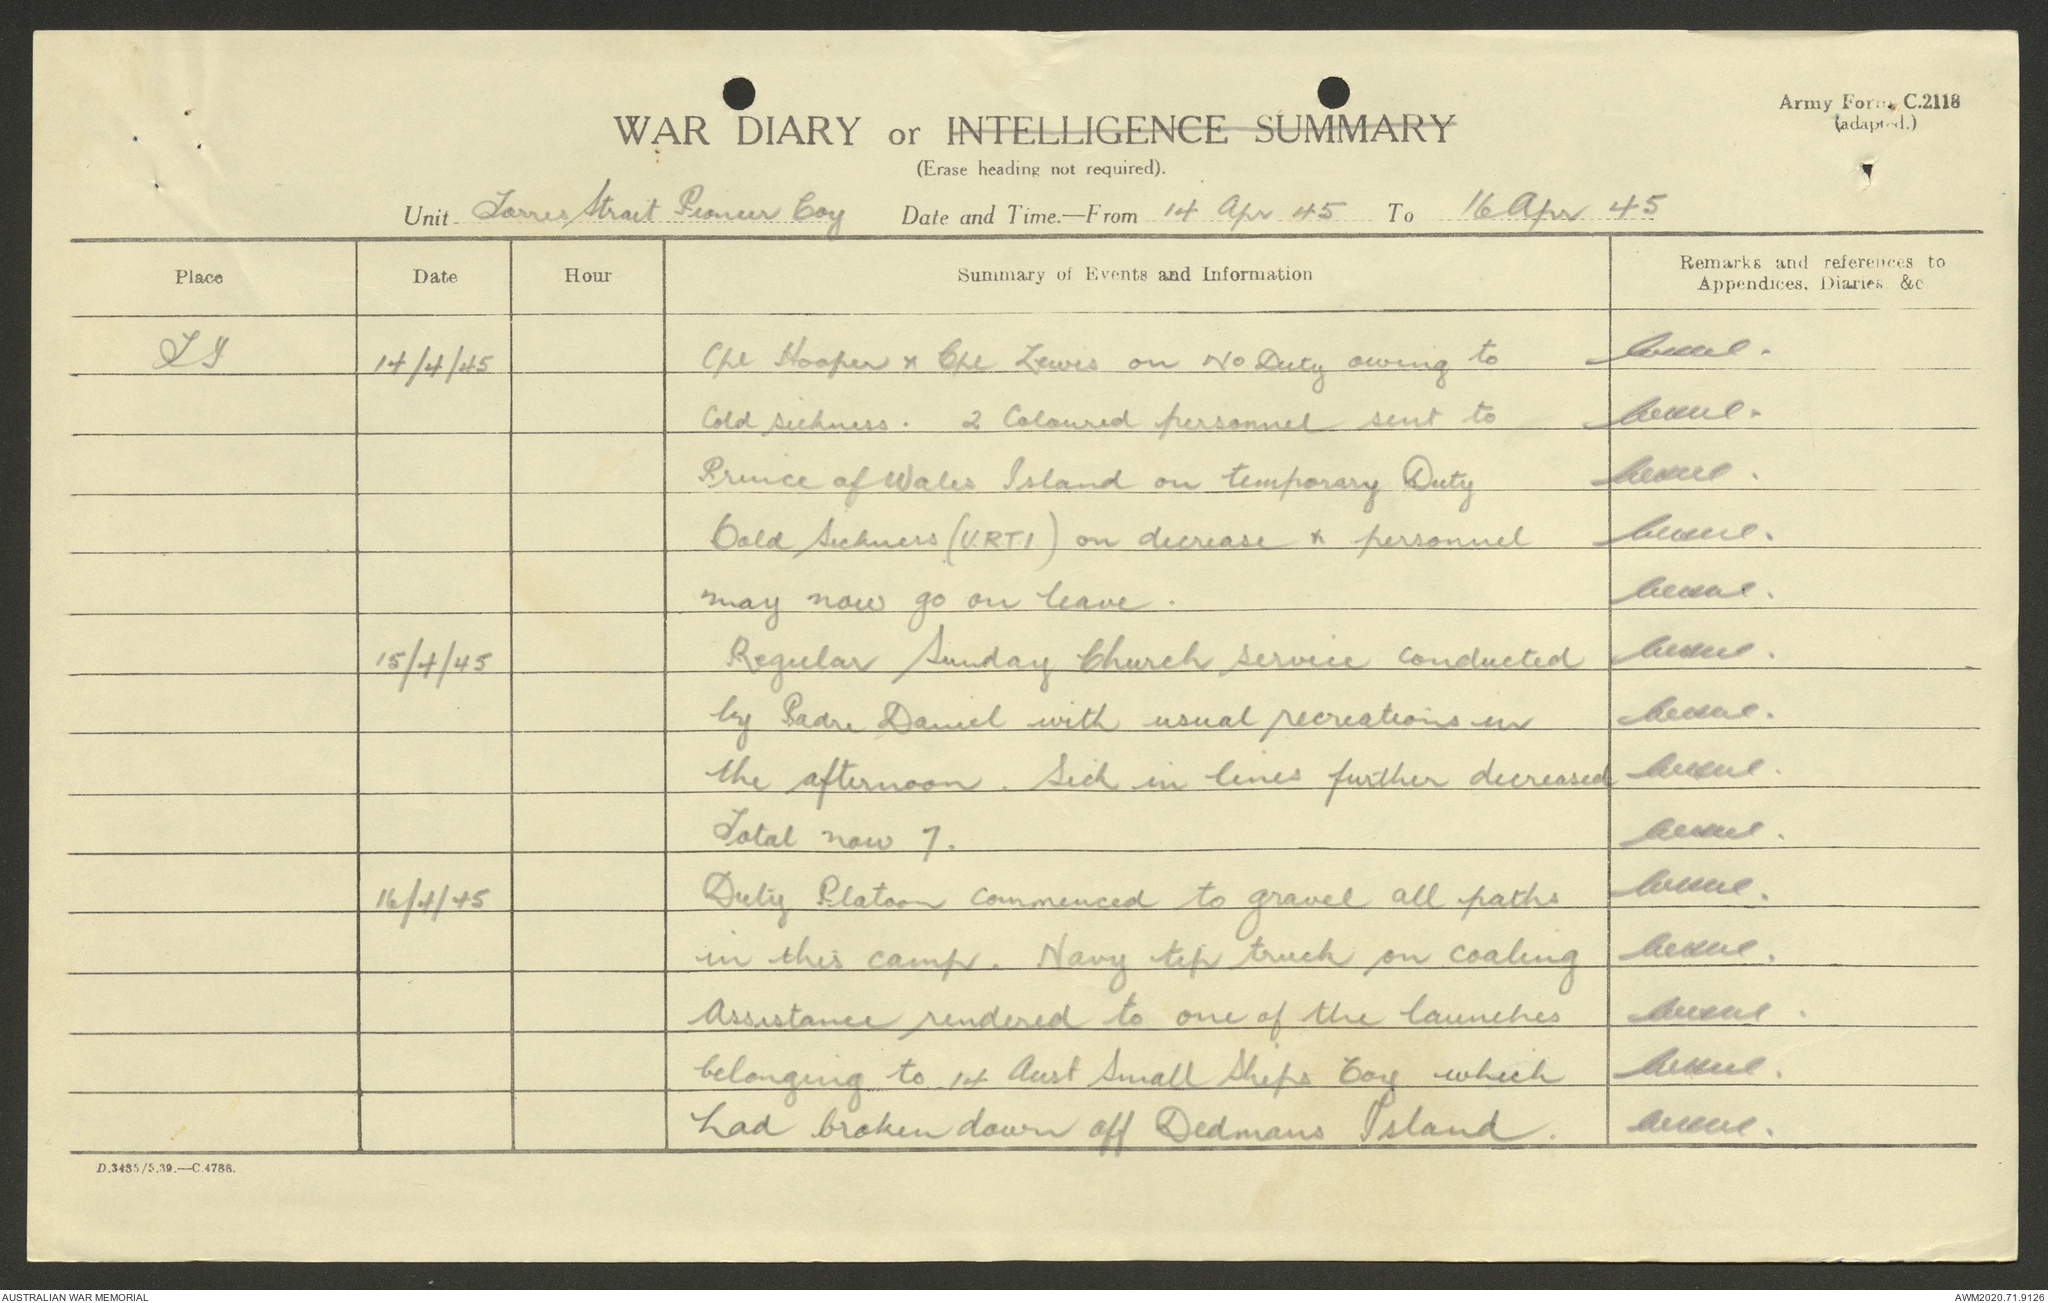 Army Form C.2118
(adapted.)
WAR DIARY or INTELLIGENCE SUMMARY
(Erase heading not required).
Unit Torres Strait Pioneer Coy Date and Time.—From 14 Apr 45 To 16 Apr 45
Place Date Hour Summary of Events and Information Remarks and references to Appendices, Diaries, &c
TI 14/4/45 Cpl Hooper & Cpl Lewis on No Duty owing to
Cold sickness. 2 Coloured personnel sent to
Prince of Wales Island on temporary Duty
Cold Sickness (U.R.T.I.) on decrease & personnel
may now go on leave.
15/4/45 Regular Sunday Church service conducted
by Padre Daniel with usual recreations in
the afternoon. Sick in lines further decreased
Total now 7.
16/4/45 Duty Platoon commenced to gravel all paths
in this camp. Navy tip truck on coaling
Assistance rendered to one of the launches
belonging to 14 Aust Small Ships Coy which
had broken down off Dedmans Island.
D.3485/5.39.—C.4786.
AUSTRALIAN WAR MEMORIAL
AWM2020.71.9126